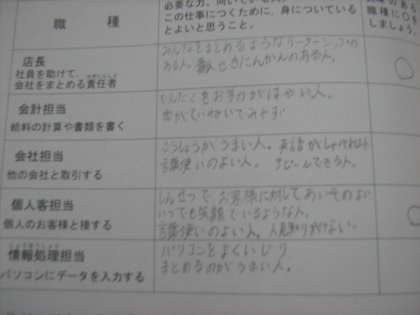 職種
必要な力、向いている人
この仕事につくために、身についている
とよいと思うこと。
職種に○
しましょう。
店長
社員を助けて、
会社をまとめる責任者
みんなをまとめるようなリーダーシップの
ある人。責任かんのある人。
○
会計担当
給料の計算や書類を書く
字がていねいで
会社担当
他の会社と取引する
こうしょうがうまい人。英語がしゃべれる人
言葉使いのよい人。アピールできる人。
個人客担当
個人のお客様と接する
しんせつで、お客様に対してあいそのよい
いつでも笑顔でいるような人。
言葉使いのよい人。人見知りがない。
○
情報処理担当
パソコンにデータを入力する
パソコンをよくいじり
まとめるのがうまい人。